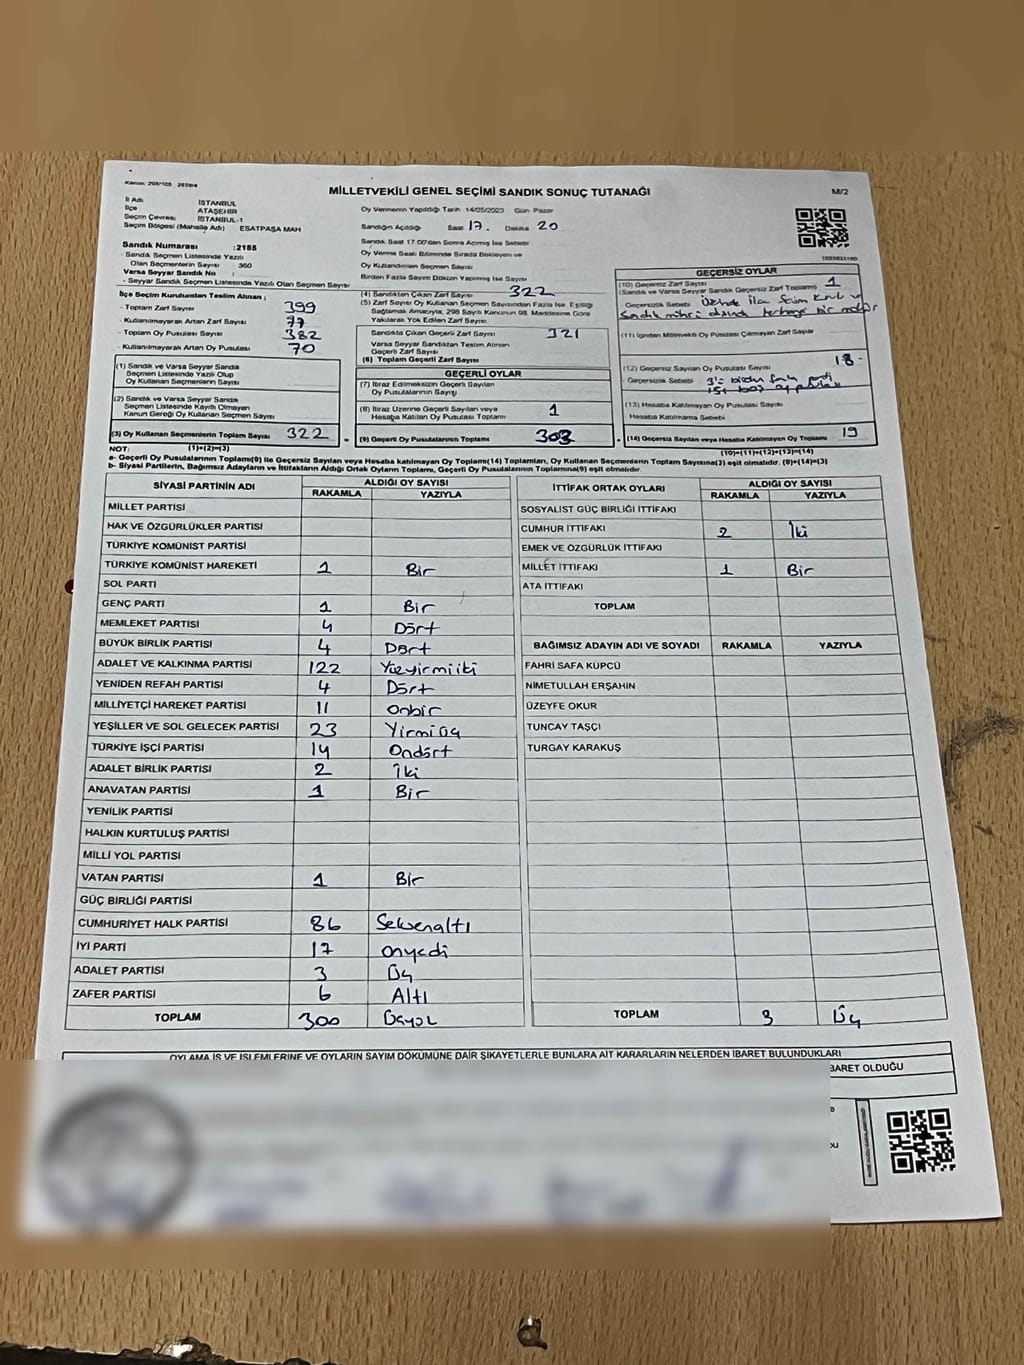 Kanun, 298/105
MİLLETVEKİLİ GENEL SEÇİMİ SANDIK SONUÇ TUTANAĞI
M/2
İl Adı : İSTANBUL
İlçe : ATAŞEHİR
Seçim Çevresi : İSTANBUL-1
Seçim Bölgesi (Mahalle Adı) : ESATPAŞA MAH
Sandık Numarası :2185
- Sandık Seçmen Listesinde Yazılı
Olan Seçmenlerin Sayısı : 360
Varsa Seyyar Sandık No :
- Seyyar Sandık Seçmen Listesinde Yazılı Olan Seçmen Sayısı
İlçe Seçim Kurulundan Teslim Alınan ;
- Toplam Zarf Sayısı 399
- Kullanılmayarak Artan Zarf Sayısı 77
- Toplam Oy Pusulası Sayısı 382
- Kullanılmayarak Artan Oy Pusulası 70
(1) Sandık ve Varsa Seyyar Sandık
Seçmen Listesinde Yazılı Olup
Oy Kullanan Seçmenlerin Sayısı
(2) Sandık ve Varsa Seyyar Sandık
Seçmen Listesinde Kayıtlı Olmayan
Kanun Gereği Oy Kullanan Seçmen Sayısı
(3) Oy Kullanan Seçmenlerin Toplam Sayısı 322
(1)+(2)=(3)
Oy Vermenin Yapıldığı Tarih 14/05/2023 Gün: Pazar
Sandığın Açıldığı Saat 17. Dakika 20
Sandık Saat 17:00'den Sonra Açılmış İse Sebebi
Oy Verme Saati Bitiminde Sırada Bekleyen ve
Oy Kullandırılan Seçmen Sayısı
Birden Fazla Sayım Döküm Yapılmış İse Sayısı
(4) Sandıktan Çıkan Zarf Sayısı 322
(5) Zarf Sayısı Oy Kullanan Seçmen Sayısından Fazla İse, Eşitliği
Sağlamak Amacıyla, 298 Sayılı Kanunun 98. Maddesine Göre
Yakılarak Yok Edilen Zarf Sayısı
Sandıkta Çıkan Geçerli Zarf Sayısı 321
Varsa Seyyar Sandıktan Teslim Alınan
Geçerli Zarf Sayısı
(6) Toplam Geçerli Zarf Sayısı
GEÇERLİ OYLAR
(7) İtiraz Edilmeksizin Geçerli Sayılan
Oy Pusulalarının Sayısı
(8) İtiraz Üzerine Geçerli Sayılan veya
Hesaba Katılan Oy Pusulası Toplamı 1
(9) Geçerli Oy Pusulalarının Toplamı 303
GEÇERSİZ OYLAR
(10) Geçersiz Zarf Sayısı 1
(Sandık ve Varsa Seyyar Sandık Geçersiz Zarf Toplamı)
- Geçersizlik Sebebi Üzerinde İlçe Seçim Kurulu ve
Sandık mührü dışında herhangi bir mühür
(11) İçinden Milletvekili Oy Pusulası Çıkmayan Zarf Sayısı
(12) Geçersiz Sayılan Oy Pusulası Sayısı 18
- Geçersizlik Sebebi 3'ü birden fazla parti
15'i boş oy pusulası
(13) Hesaba Katılmayan Oy Pusulası Sayısı
Hesaba Katılmama Sebebi
(14) Geçersiz Sayılan veya Hesaba Katılmayan Oy Toplamı 19
(10)+(11)+(12)+(13)=(14)
NOT:
a- Geçerli Oy Pusulalarının Toplamı(9) ile Geçersiz Sayılan veya Hesaba katılmayan Oy Toplamı(14) Toplamları, Oy Kullanan Seçmenlerin Toplam Sayısına(3) eşit olmalıdır. (9)+(14)=(3)
b- Siyasi Partilerin, Bağımsız Adayların ve İttifakların Aldığı Ortak Oyların Toplamı, Geçerli Oy Pusulalarının Toplamına(9) eşit olmalıdır
SİYASİ PARTİNİN ADI ALDIĞI OY SAYISI
RAKAMLA YAZIYLA
MİLLET PARTİSİ
HAK VE ÖZGÜRLÜKLER PARTİSİ
TÜRKİYE KOMÜNİST PARTİSİ
TÜRKİYE KOMÜNİST HAREKETİ 1 Bir
SOL PARTİ
GENÇ PARTİ 1 Bir
MEMLEKET PARTİSİ 4 Dört
BÜYÜK BİRLİK PARTİSİ 4 Dört
ADALET VE KALKINMA PARTİSİ 122 Yüzyirmiiki
YENİDEN REFAH PARTİSİ 4 Dört
MİLLİYETÇİ HAREKET PARTİSİ 11 Onbir
YEŞİLLER VE SOL GELECEK PARTİSİ 23 Yirmiüç
TÜRKİYE İŞÇİ PARTİSİ 14 Ondört
ADALET BİRLİK PARTİSİ 2 İki
ANAVATAN PARTİSİ 1 Bir
YENİLİK PARTİSİ
HALKIN KURTULUŞ PARTİSİ
MİLLİ YOL PARTİSİ
VATAN PARTİSİ 1 Bir
GÜÇ BİRLİĞİ PARTİSİ
CUMHURİYET HALK PARTİSİ 86 Seksenaltı
İYİ PARTİ 17 Onyedi
ADALET PARTİSİ 3 Üç
ZAFER PARTİSİ 6 Altı
TOPLAM 300 Üçyüz
İTTİFAK ORTAK OYLARI ALDIĞI OY SAYISI
RAKAMLA YAZIYLA
SOSYALİST GÜÇ BİRLİĞİ İTTİFAKI
CUMHUR İTTİFAKI 2 İki
EMEK VE ÖZGÜRLÜK İTTİFAKI
MİLLET İTTİFAKI 1 Bir
ATA İTTİFAKI
TOPLAM
BAĞIMSIZ ADAYIN ADI VE SOYADI RAKAMLA YAZIYLA
FAHRİ SAFA KÜPCÜ
NİMETULLAH ERŞAHİN
ÜZEYFE OKUR
TUNCAY TAŞÇI
TURGAY KARAKUŞ
TOPLAM 3 Üç
OYLAMA İŞ VE İŞLEMLERİNE VE OYLARIN SAYIM DÖKÜMÜNE DAİR ŞİKAYETLERLE BUNLARA AİT KARARLARIN NELERDEN İBARET BULUNDUKLARI
BARET OLDUĞU